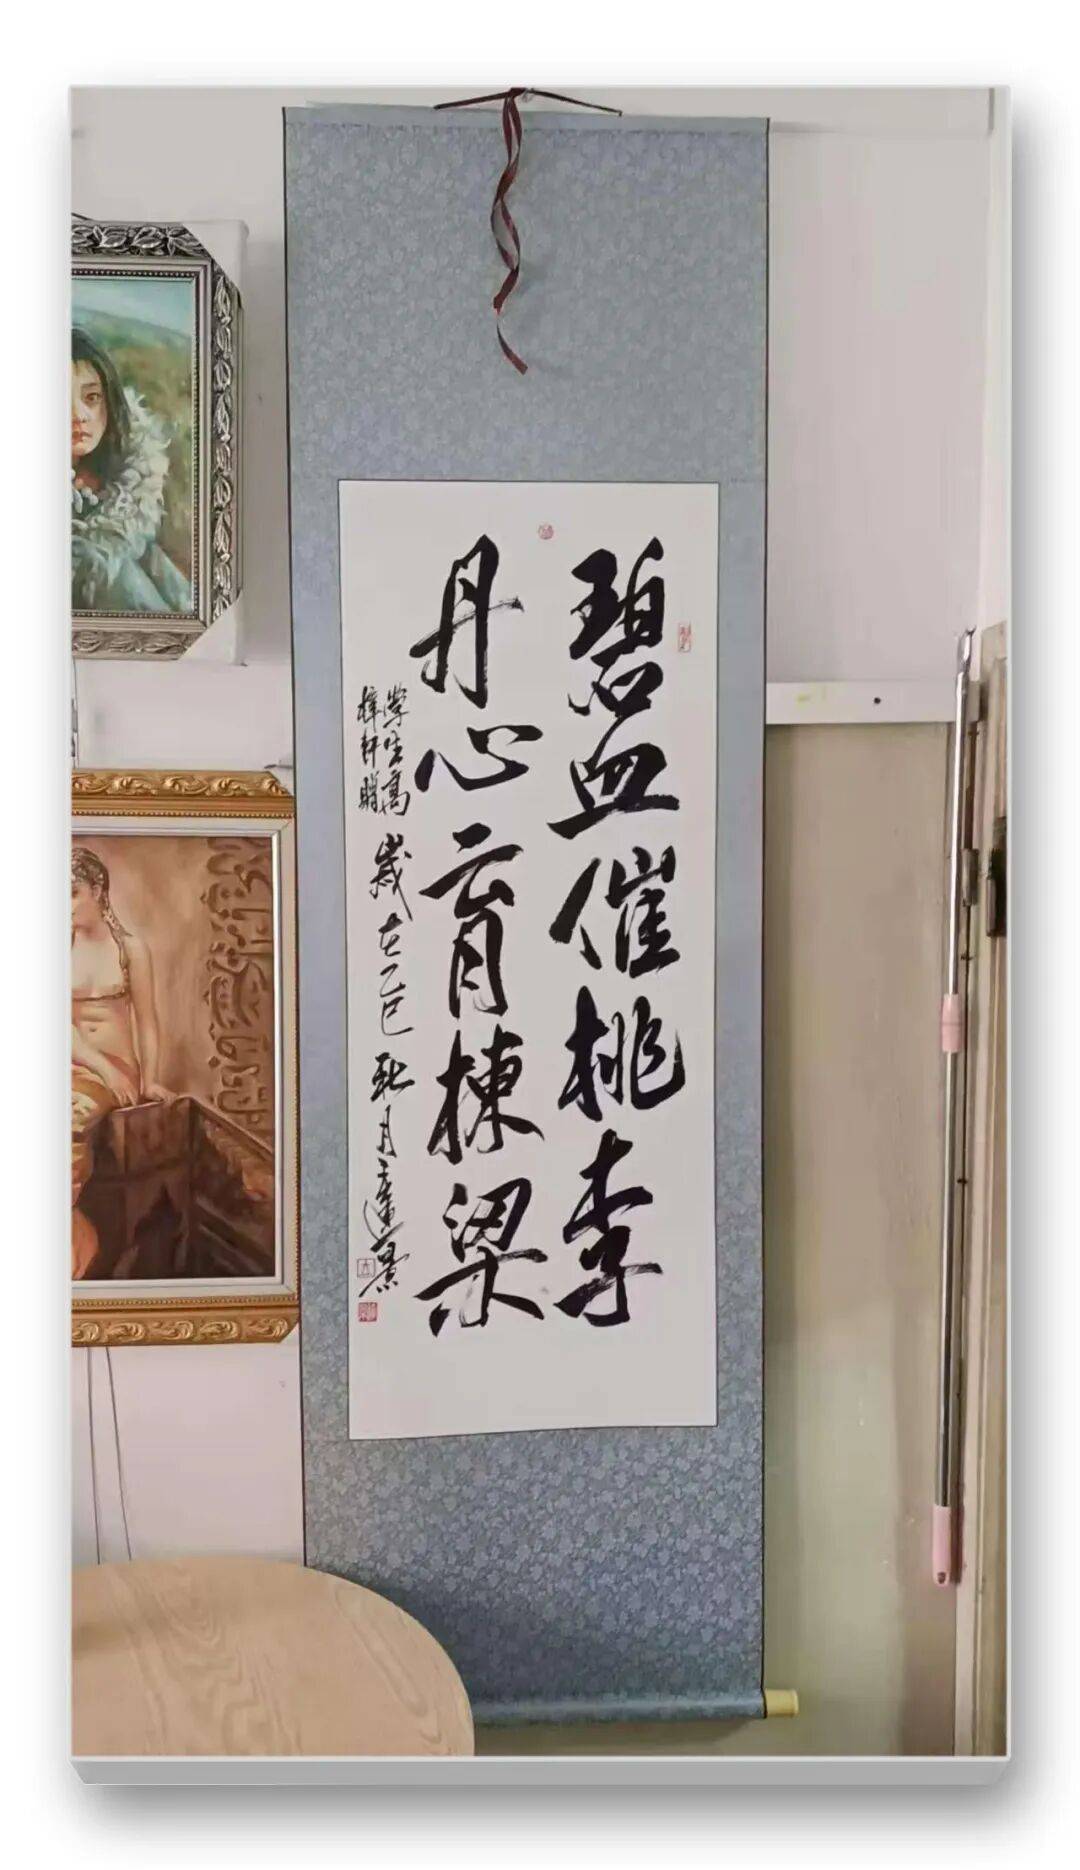 碧血催桃李
丹心育棟梁
学生高
梓軒贈
歲在乙巳秋月